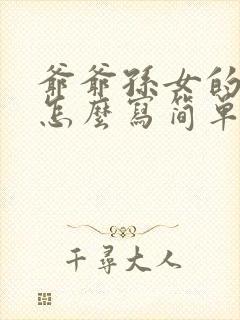 爺爺孫女的
怎麼寫简单
千尋大人